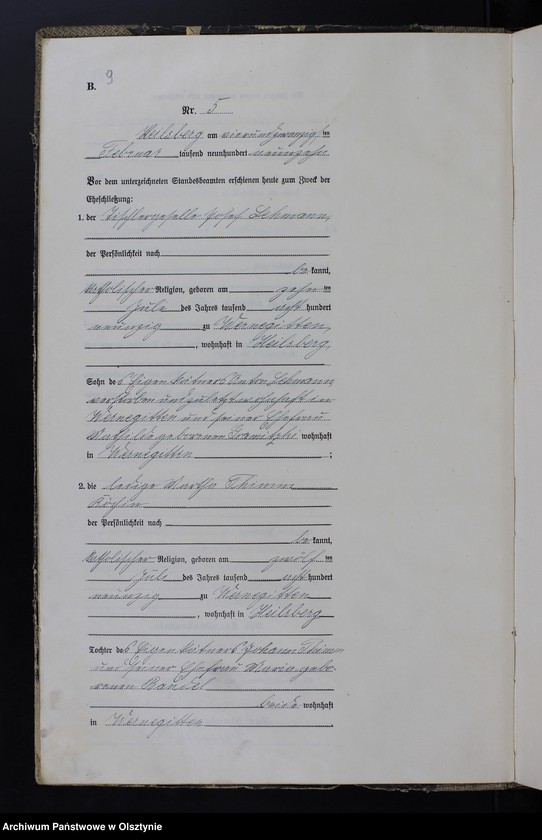 9
B.
Nr. 5
Heilsberg am vierundzwanzigsten
Februar tausend neunhundert neunzehn
Vor dem unterzeichneten Standesbeamten erschienen heute zum Zweck der
Eheschließung:
1. der Tischlergeselle Josef Lehmann,
der Persönlichkeit nach
bekannt,
katholischer Religion, geboren am zehnten
Juli des Jahres tausend acht hundert
neunzig zu Wernegitten,
, wohnhaft in Heilsberg,
Sohn des Eigenkätners Anton Lehmann
verstorben und zuletzt wohnhaft in
Wernegitten und seiner Ehefrau
geborenen wohnhaft
in Wernegitten ;
2. die ledige Martha Thimm
Köchin
der Persönlichkeit nach
bekannt,
katholischer Religion, geboren am zwölften
Juli des Jahres tausend acht hundert
neunzig zu Wernegitten
, wohnhaft in Heilsberg
Tochter des Eigenkätners Johann Thimm
und seiner Ehefrau Maria gebo-
renen
beide wohnhaft
in Wernegitten .
Archiwum Państwowe w Olsztynie